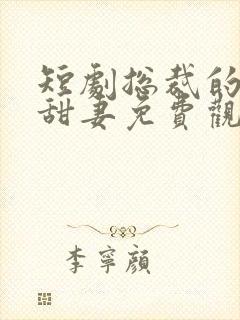 短劇總裁的
甜妻免費觀
李寧顏